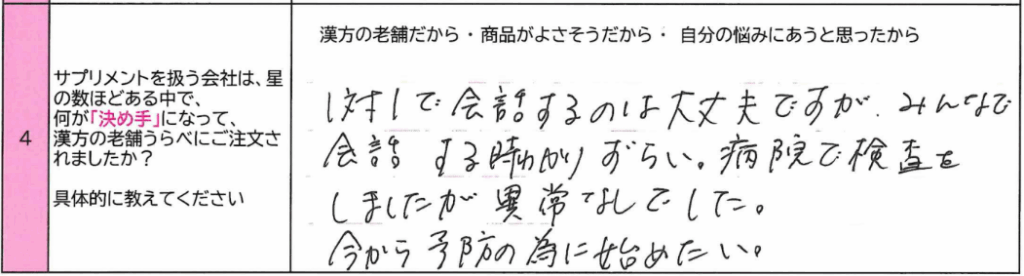 4
サプリメントを扱う会社は、星
の数ほどある中で、
何が「決め手」になって、
漢方の老舗うらべにご注文さ
れましたか？
具体的に教えてください
漢方の老舗だから・商品がよさそうだから・ 自分の悩みにあうと思ったから
1対1で会話するのは大丈夫ですが、みんなで
会話 する時わかりずらい。病院で検査を
しましたが異常なしでした。
今から予防の為に始めたい。